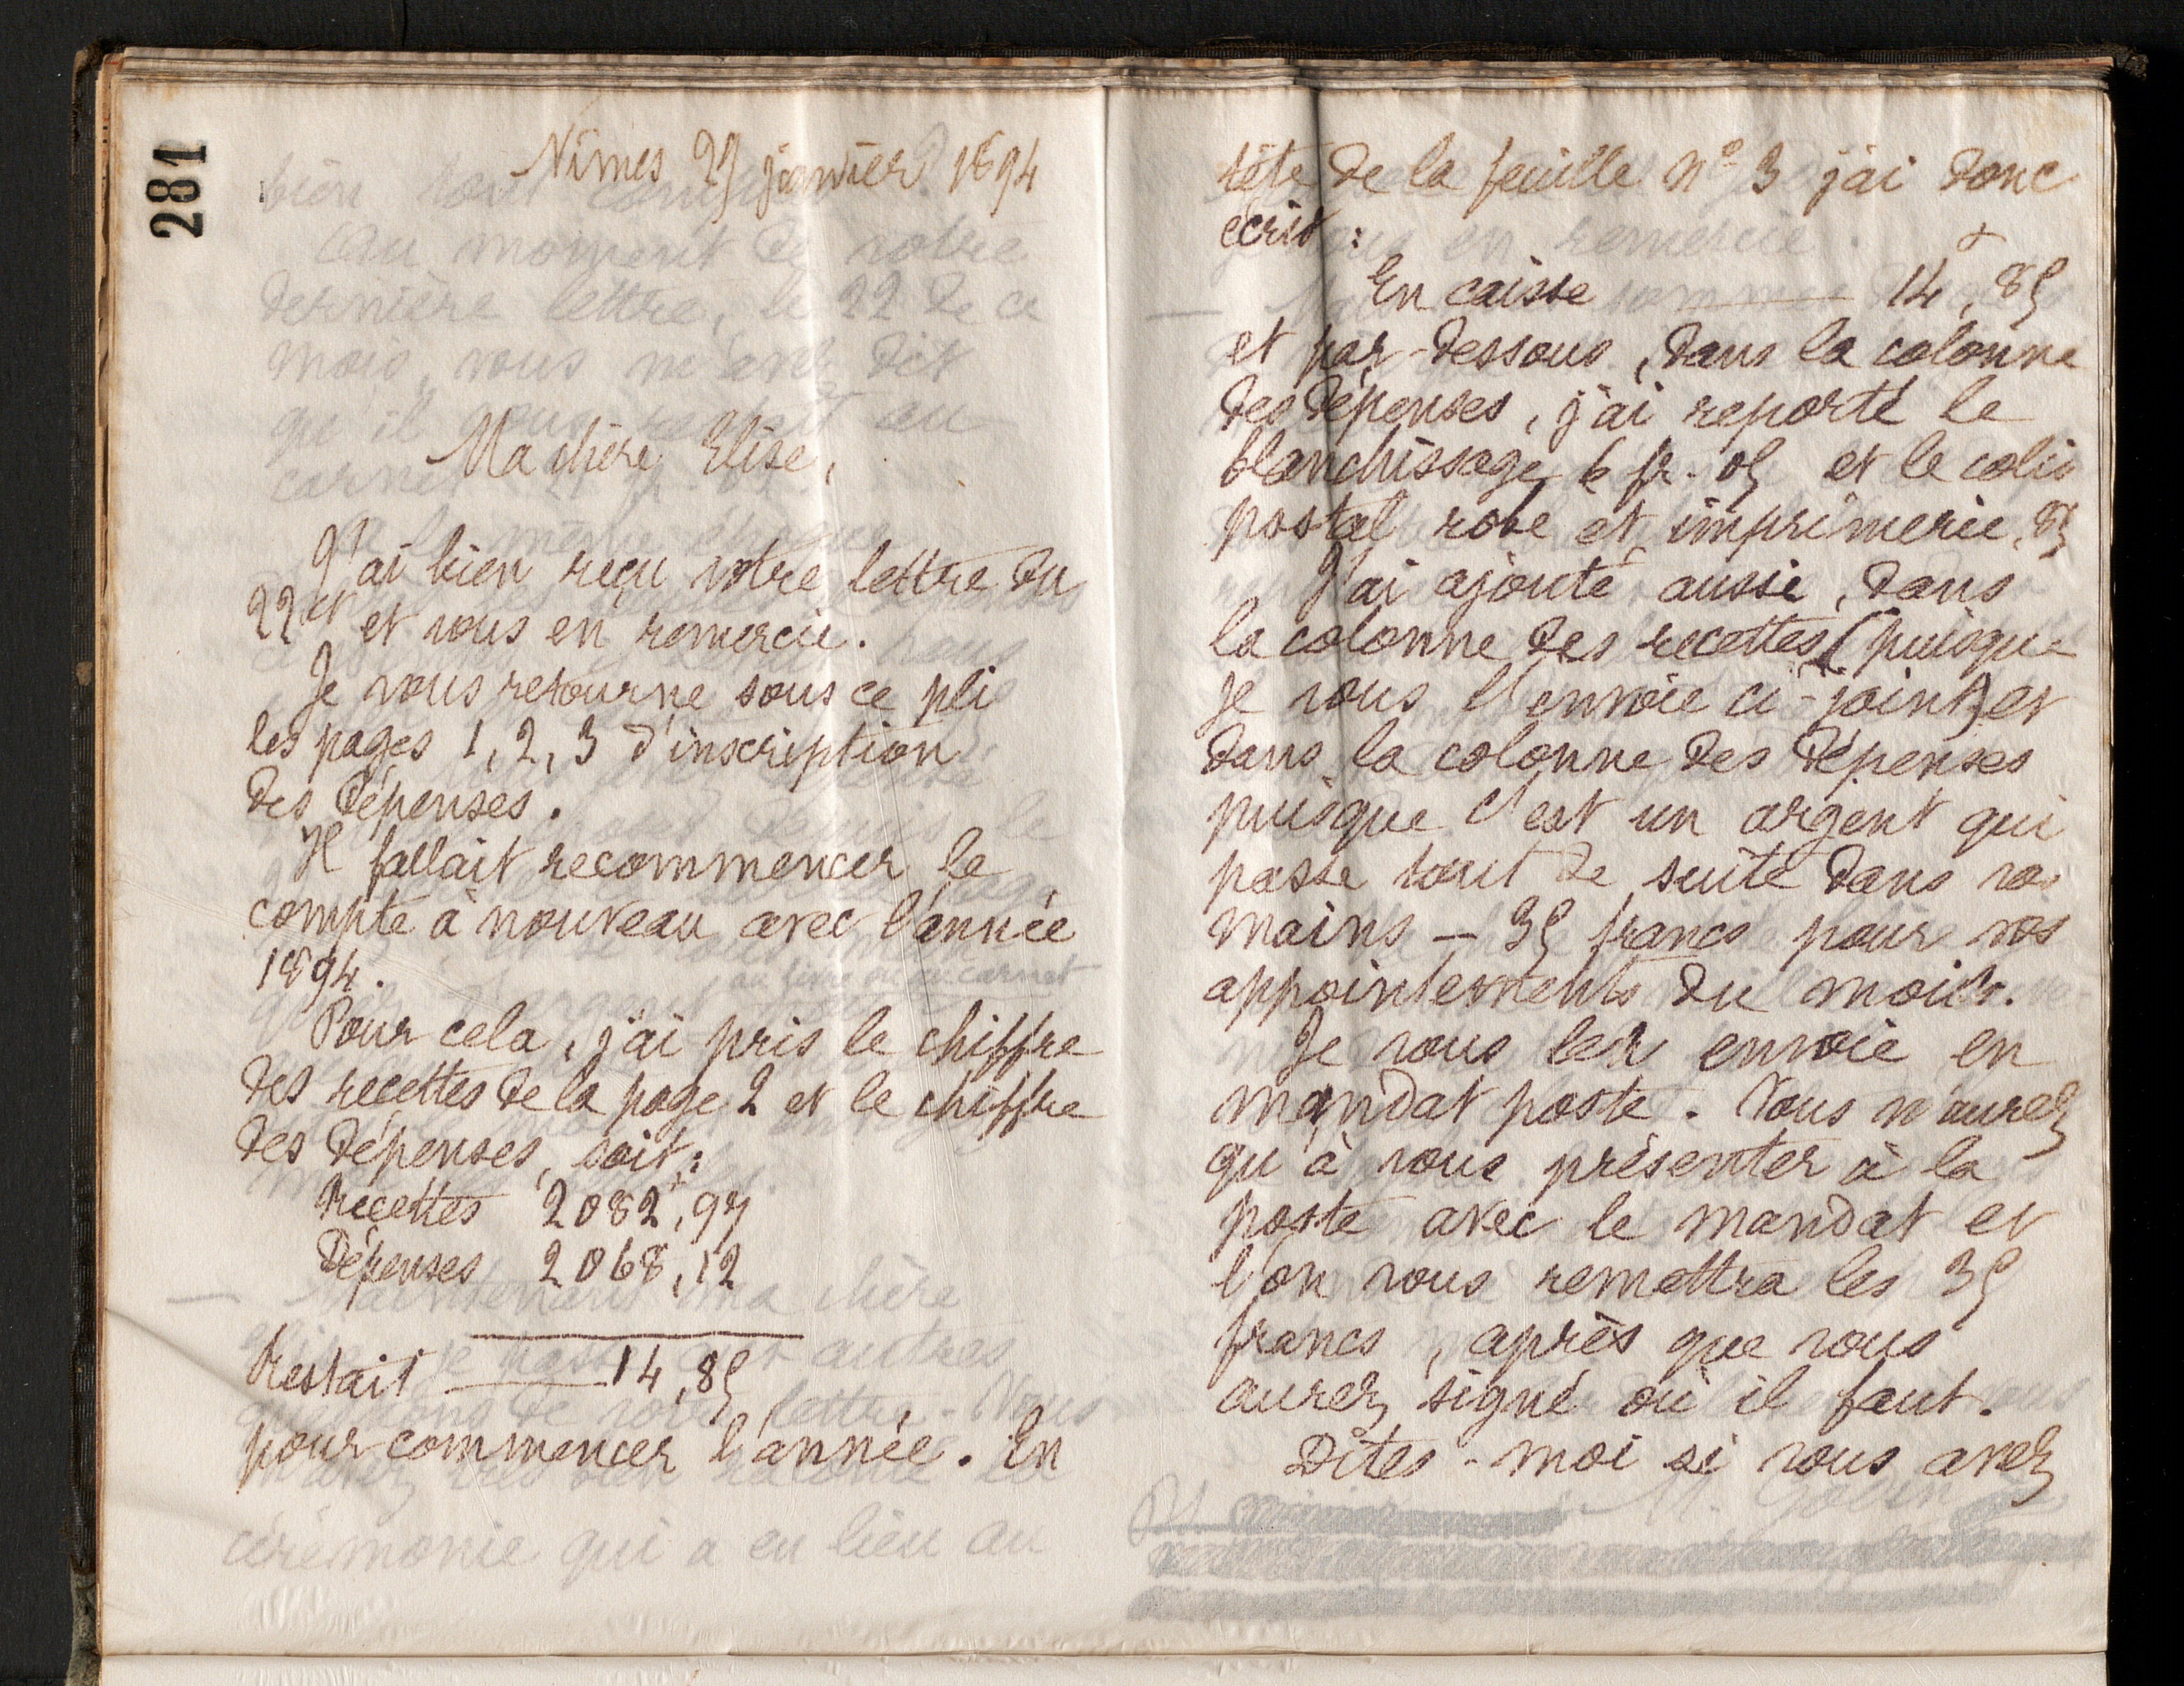 281
Nîmes 27 janvier 1894
Ma chère Elise,
J'ai bien reçu votre lettre du
22 ct et vous en remercie.
Je vous retourne sous ce pli
les pages 1, 2, 3 d'inscription
des dépenses.
Il fallait recommencer le
compte à nouveau avec l'année
1894.
Pour cela, j'ai pris le chiffre
des recettes de la page 2 et le chiffre
des dépenses, soit:
Recettes 2082f,97
Dépenses 2068,12
Restait — 14,85
pour commencer l'année. En
tête de la feuille n° 3 j'ai donc
écrit :
En caisse — 14f,85
et par-dessous, dans la colonne
des dépenses, j'ai reporté le
blanchissage 6 fr. 05 et le colis
postal robe et imprimerie, 85
J'ai ajouté aussi, dans
la colonne des recettes (puisque
je vous l'envoie ci-joint) et
dans la colonne des dépenses
puisque c'est un argent qui
passe tout de suite dans vos
mains — 35 francs pour vos
appointements du mois.
Je vous les envoie en
mandat poste. Vous n'aurez
qu'à vous présenter à la
poste avec le mandat et
l'on vous remettra les 35
francs, après que vous
aurez signé où il faut.
Dites-moi si vous avez